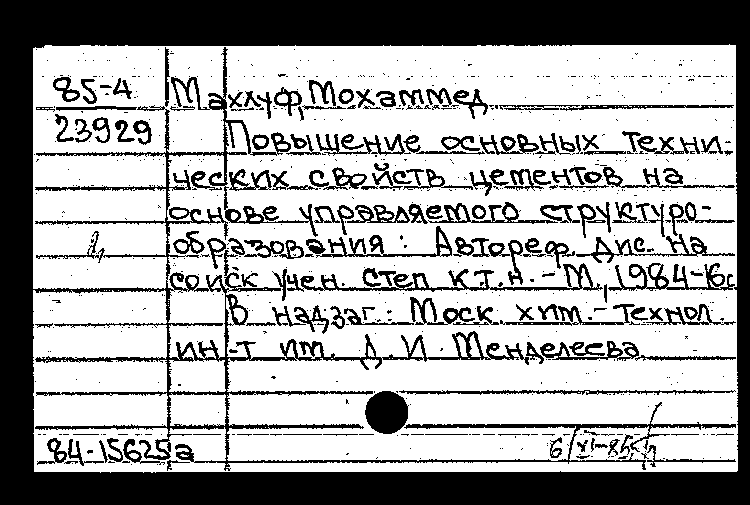 85-4 Махлуф, Мохаммед
23929 Повышение основных техни-
ческих свойств цементов на
основе управляемого структуро-
образования: Автореф. дис. на
соиск учен. степ к.т.н. - М., 1984-16с
В надзаг.: Моск. хим.-технол.
ин-т им. Д. И. Менделеева
84-15625а 6/XI-85